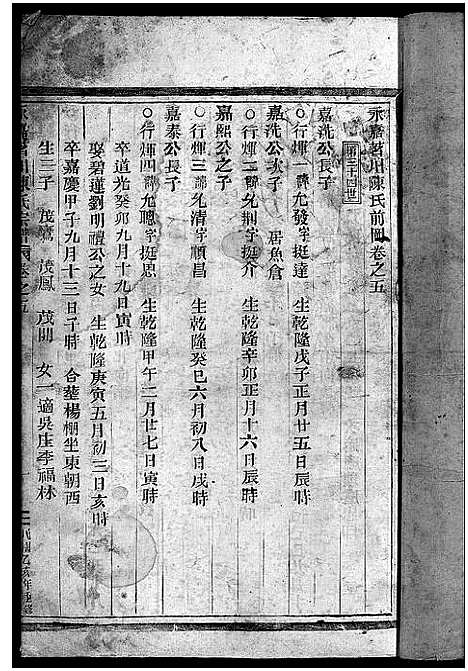 永嘉茗川陳氏前圖卷之五
第三十四世
嘉洗公長子
○行煇一諱允發字挺達 生乾隆戊子正月廿五日辰時
嘉洗公次子 居魚倉
○行煇二諱允荆字挺介 生乾隆辛卯正月十六日辰時
嘉熙公之子
○行煇三諱允清字順昌 生乾隆癸巳六月初八日戌時
嘉泰公長子
○行煇四諱允聰字挺恩 生乾隆甲午二月廿七日寅時
卒道光癸卯九月十九日寅時
娶碧蓮劉明禮公之女 生乾隆庚寅五月初三日亥時
卒嘉慶甲子九月十三日子時 合塟楊棚坐東朝西
生三子 茂 茂鳳 茂開 女一適吳庄李福林